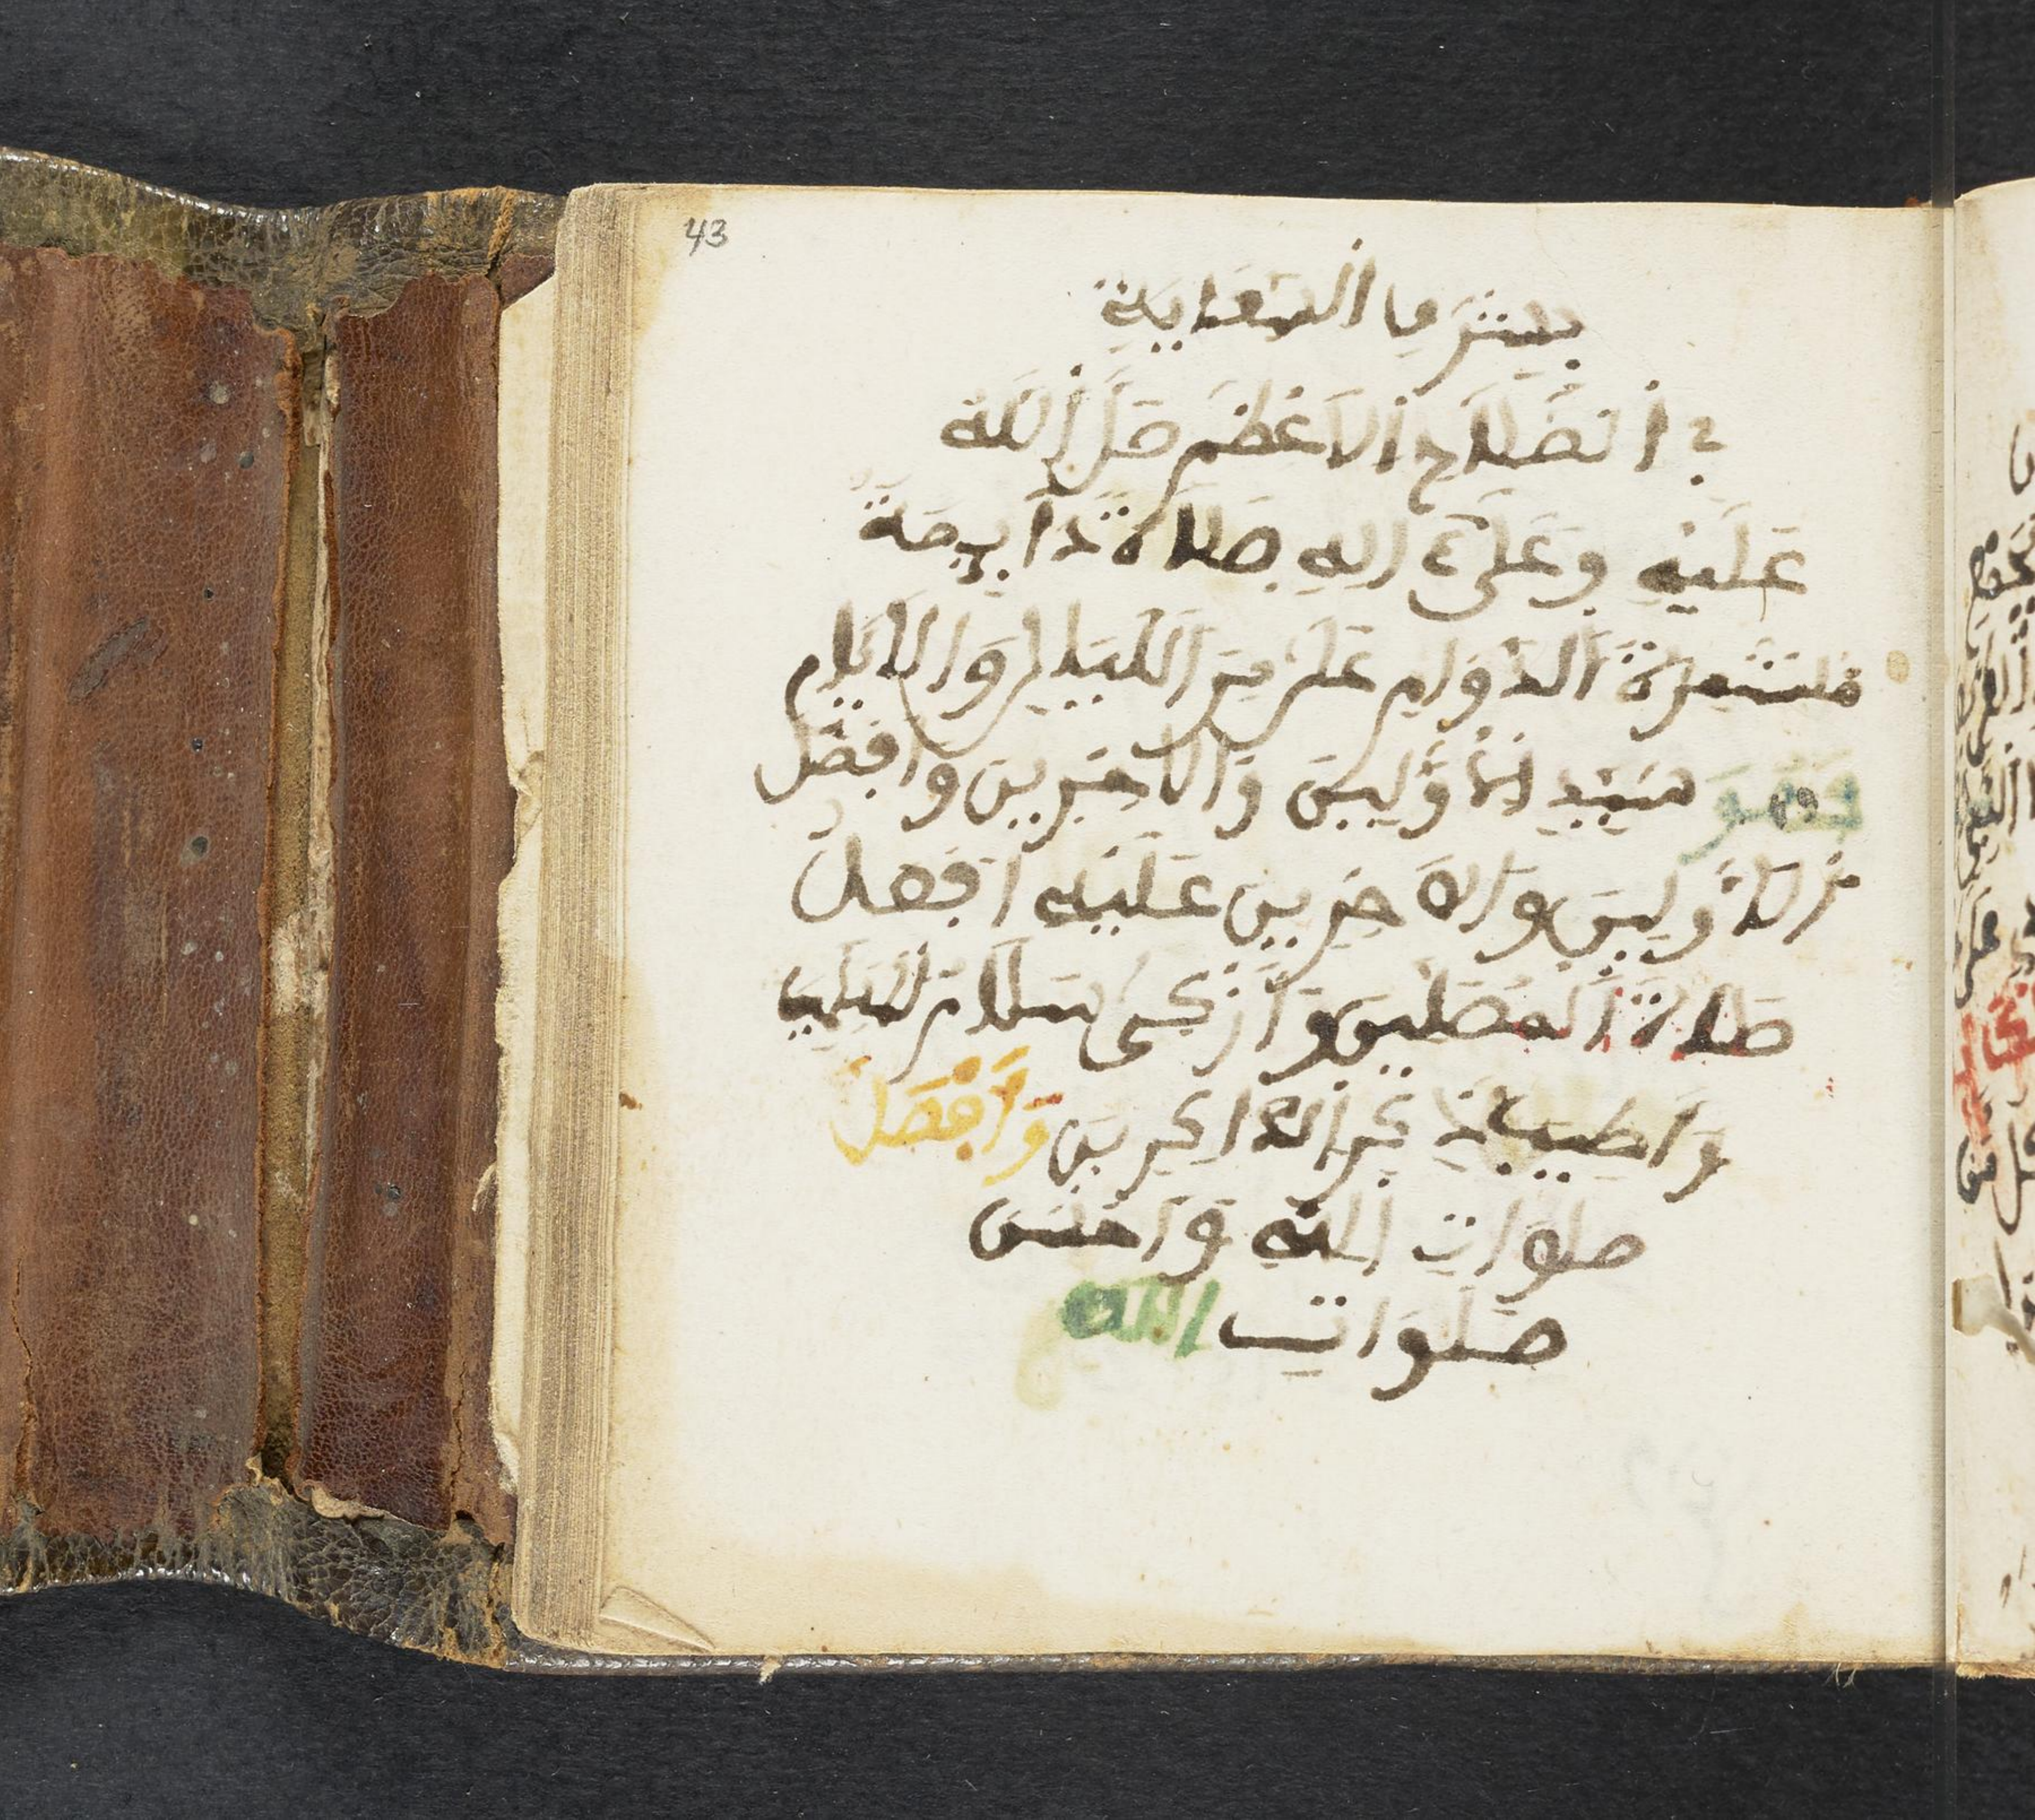 43
بيشر ما العناية
بالصلاح الاعظم صل الله
عليه وعلى ءاله صلاة دايمة
مستمرة الدوام على مر الليل والايام
سيد الاولين والاخرين وافضل
الاولين والاخرين عليه افضل
صلاة المصلين وازكى سلام المسلمين
واطيب ذكر الذاكرين وافضل
صلوات الله واحسن
صلوات الله